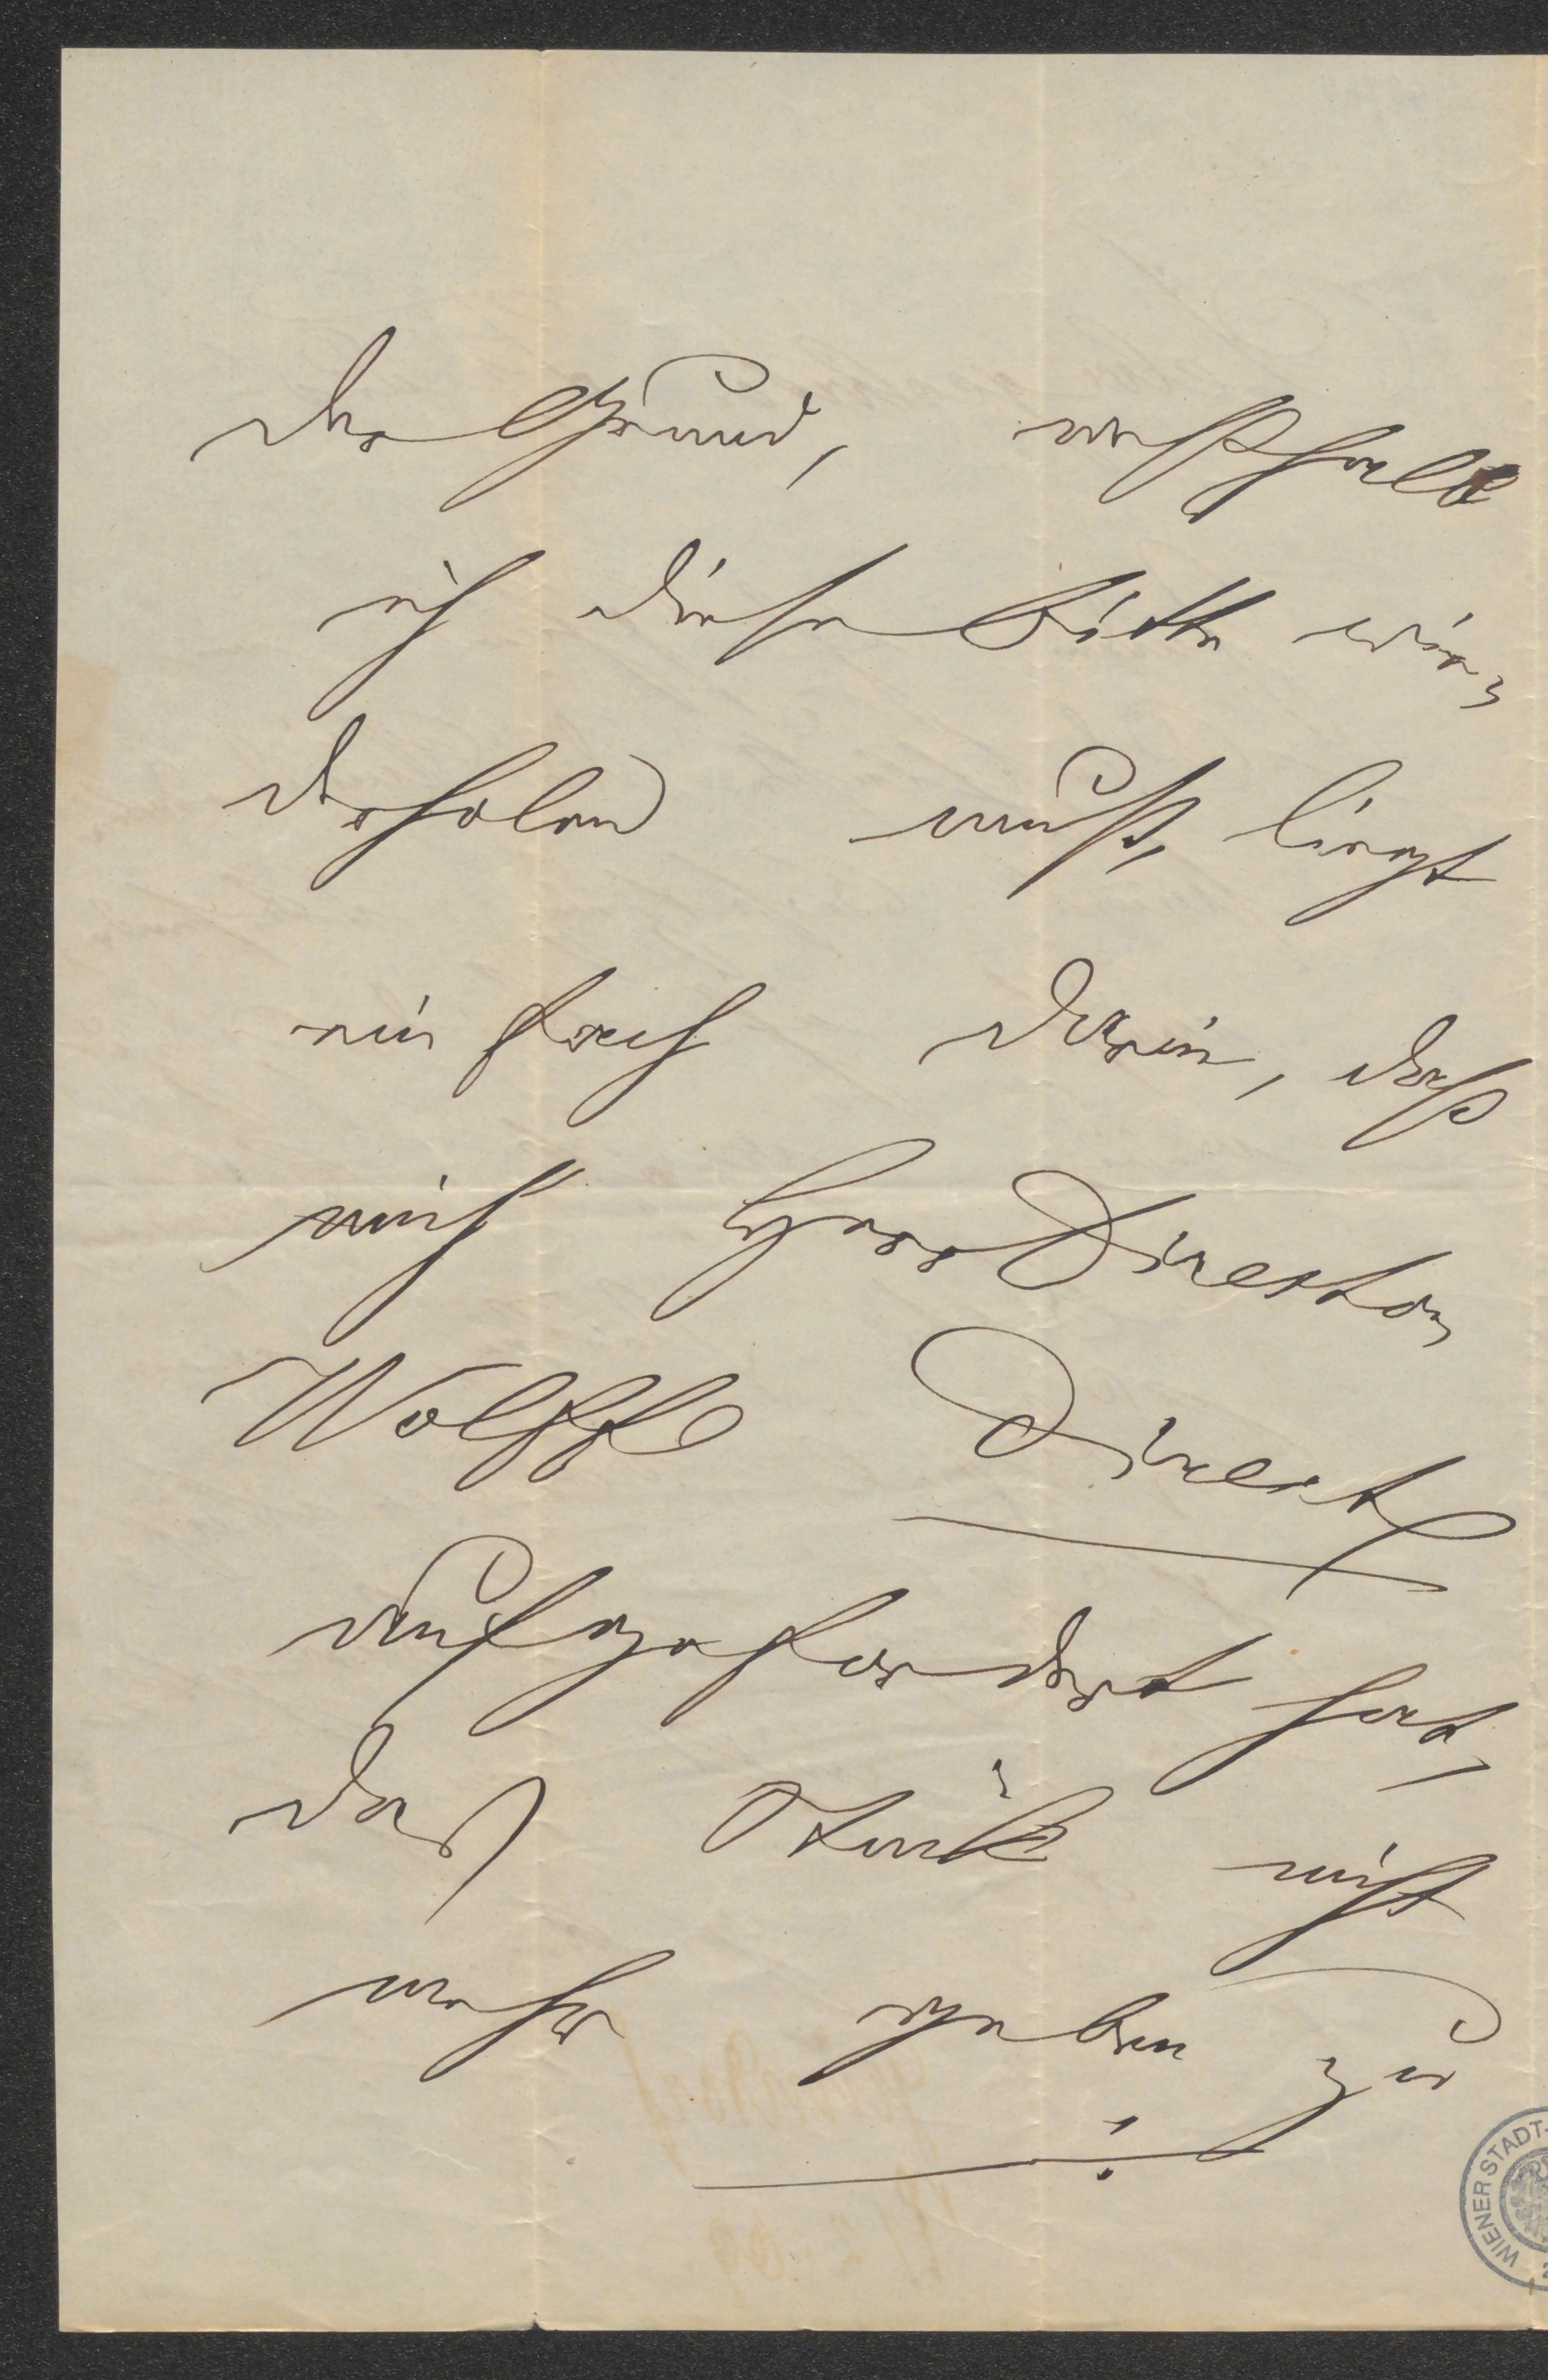 Der Grund, weßhalb
ich diese Bitte wie-
derholen muß, liegt
einfach darin, daß
mich Herr Director
Wolff direct
aufgefordert hat,
das Stück nicht
mehr geben zu
WIENER STADT-